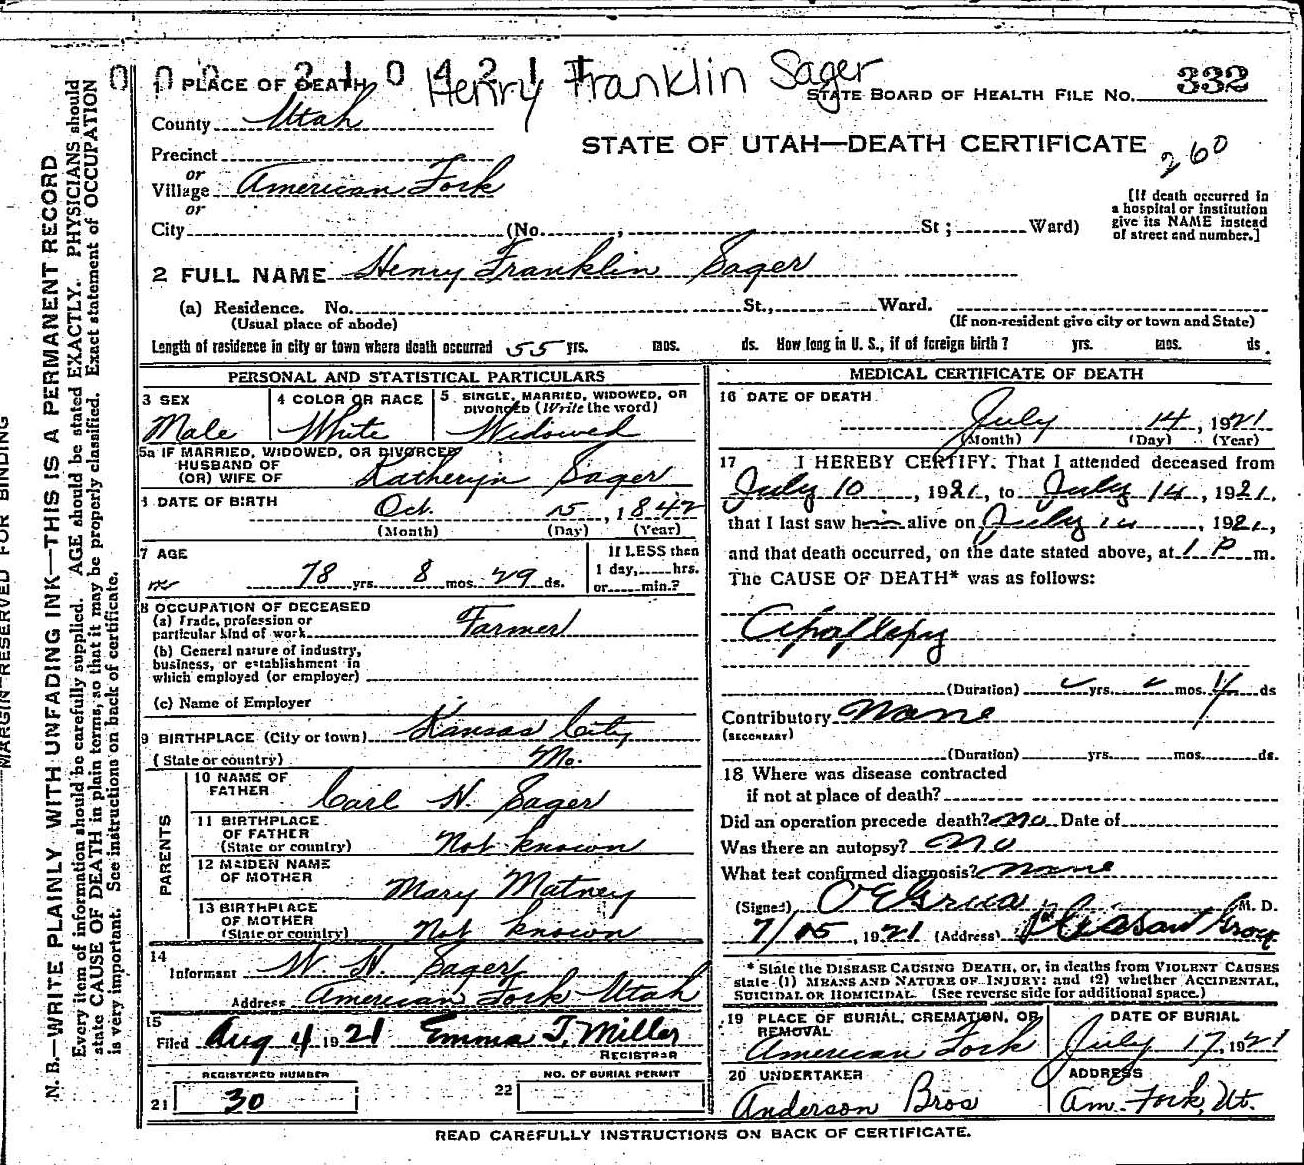 0 0 0 2 1 0 4 2 1 1
Henry Franklin Sager
1 PLACE OF DEATH
STATE BOARD OF HEALTH FILE No. 332
County Utah
STATE OF UTAH—DEATH CERTIFICATE
260
Precinct
or
Village American Fork
or
City (No. , St ; Ward)
[If death occurred in
a hospital or institution
give its NAME instead
of street and number.]
2 FULL NAME Henry Franklin Sager
(a) Residence. No. St., Ward.
(Usual place of abode)
(If non-resident give city or town and State)
Length of residence in city or town where death occurred 55 yrs. mos. ds. How long in U. S., if of foreign birth? yrs. mos. ds.
PERSONAL AND STATISTICAL PARTICULARS
3 SEX
Male
4 COLOR OR RACE
White
5 SINGLE, MARRIED, WIDOWED, OR
DIVORCED (Write the word)
Widowed
5a IF MARRIED, WIDOWED, OR DIVORCED
HUSBAND OF
(OR) WIFE OF Katheryn Sager
6 DATE OF BIRTH
Oct. 15, 1842
(Month) (Day) (Year)
7 AGE
78 yrs. 8 mos. 29 ds.
If LESS then
1 day, hrs.
or min.?
8 OCCUPATION OF DECEASED
(a) Trade, profession or
particular kind of work Farmer
(b) General nature of industry,
business, or establishment in
which employed (or employer)
(c) Name of Employer
9 BIRTHPLACE (City or town) Kansas City
(State or country) Mo.
PARENTS
10 NAME OF
FATHER Carl H. Sager
11 BIRTHPLACE
OF FATHER
(State or country) Not known
12 MAIDEN NAME
OF MOTHER Mary Matney
13 BIRTHPLACE
OF MOTHER
(State or country) Not known
14
Informant W. H. Sager
Address American Fork Utah
15
Filed Aug 4 1921 Emma T. Miller
REGISTRAR
REGISTERED NUMBER
21 30
NO. OF BURIAL PERMIT
22
MEDICAL CERTIFICATE OF DEATH
16 DATE OF DEATH
July 14, 1921
(Month) (Day) (Year)
17 I HEREBY CERTIFY, That I attended deceased from
July 10, 1921, to July 14, 1921,
that I last saw him alive on July 14, 1921,
and that death occurred, on the date stated above, at 1 P m.
The CAUSE OF DEATH* was as follows:
Apoplexy
(Duration) yrs. mos. 4 ds
Contributory None
(SECONDARY)
(Duration) yrs. mos. ds.
18 Where was disease contracted
if not at place of death?
Did an operation precede death? no Date of
Was there an autopsy? No
What test confirmed diagnosis? none
(Signed) O E Grua M. D.
7/15, 1921 (Address) Pleasant Grove
* State the DISEASE CAUSING DEATH, or, in deaths from VIOLENT CAUSES
state (1) MEANS AND NATURE OF INJURY; and (2) whether ACCIDENTAL,
SUICIDAL OR HOMICIDAL. (See reverse side for additional space.)
19 PLACE OF BURIAL, CREMATION, OR
REMOVAL
American Fork
DATE OF BURIAL
July 17, 1921
20 UNDERTAKER
Anderson Bros
ADDRESS
Am. Fork, Ut.
READ CAREFULLY INSTRUCTIONS ON BACK OF CERTIFICATE.
MARGIN RESERVED FOR BINDING
N. B.—WRITE PLAINLY WITH UNFADING INK—THIS IS A PERMANENT RECORD
Every item of information should be carefully supplied. AGE should be stated EXACTLY. PHYSICIANS should
state CAUSE OF DEATH in plain terms, so that it may be properly classified. Exact statement of OCCUPATION
is very important. See instructions on back of certificate.